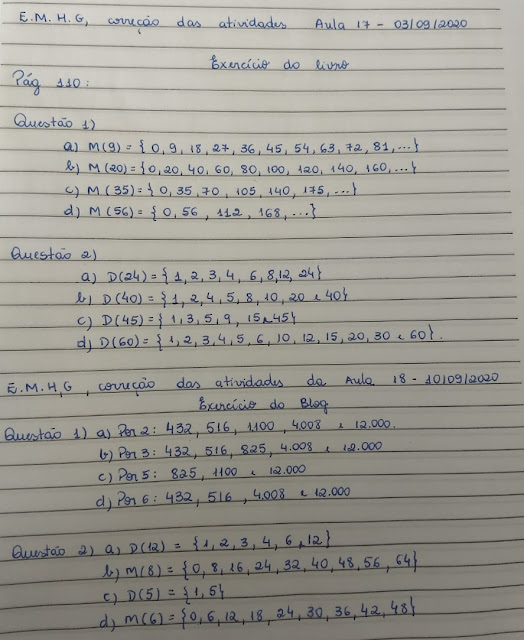 E.M.H.G, correção das atividades Aula 17 - 03/09/2020
Exercício do livro
Pág 110:
Questão 1)
a) M(9) = {0, 9, 18, 27, 36, 45, 54, 63, 72, 81, ...}
b) M(20) = {0, 20, 40, 60, 80, 100, 120, 140, 160, ...}
c) M(35) = {0, 35, 70, 105, 140, 175, ...}
d) M(56) = {0, 56, 112, 168, ...}
Questão 2)
a) D(24) = {1, 2, 3, 4, 6, 8, 12, 24}
b) D(40) = {1, 2, 4, 5, 8, 10, 20 e 40}
c) D(45) = {1, 3, 5, 9, 15 e 45}
d) D(60) = {1, 2, 3, 4, 5, 6, 10, 12, 15, 20, 30 e 60}.
E.M.H.G, correção das atividades da Aula 18 - 10/09/2020
Exercício do Blog
Questão 1) a) Por 2: 432, 516, 1100, 4.008 e 12.000.
b) Por 3: 432, 516, 825, 4.008 e 12.000
c) Por 5: 825, 1100 e 12.000
d) Por 6: 432, 516, 4.008 e 12.000
Questão 2) a) D(12) = {1, 2, 3, 4, 6, 12}
b) M(8) = {0, 8, 16, 24, 32, 40, 48, 56, 64}
c) D(5) = {1, 5}
d) M(6) = {0, 6, 12, 18, 24, 30, 36, 42, 48}